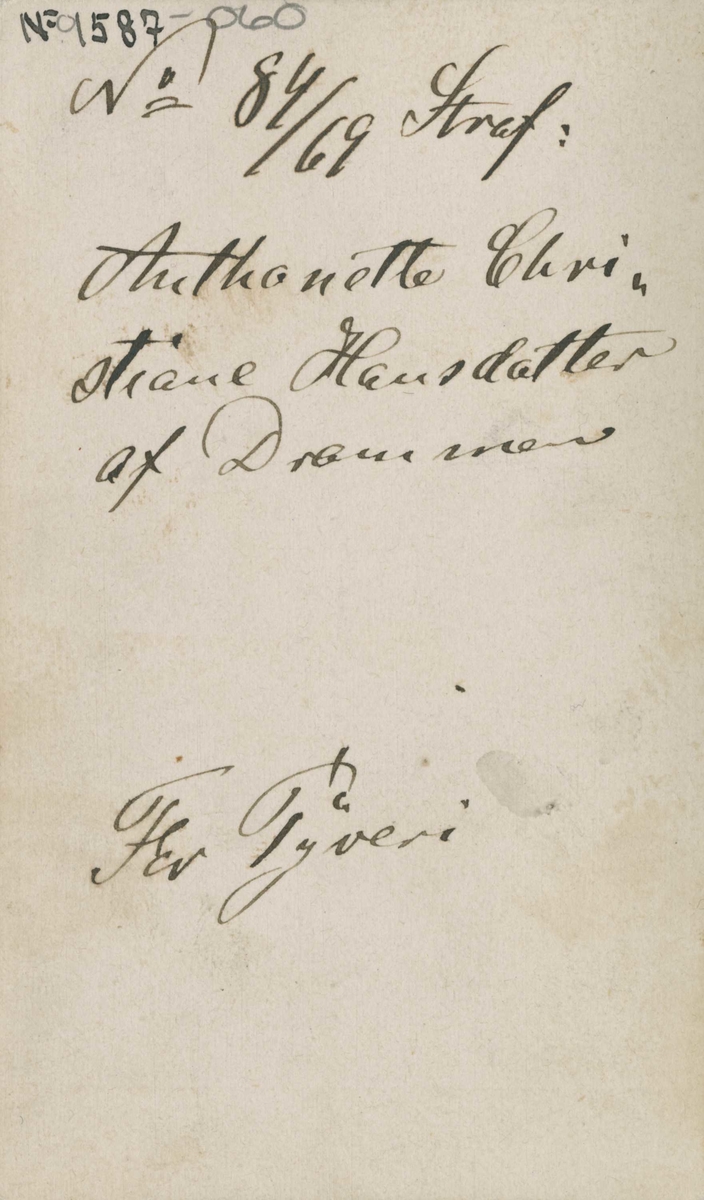 No 1587-060
No 84/69 Straf:
Anthonette Chri„
stiane Hansdatter
af Drammen
For Tyveri